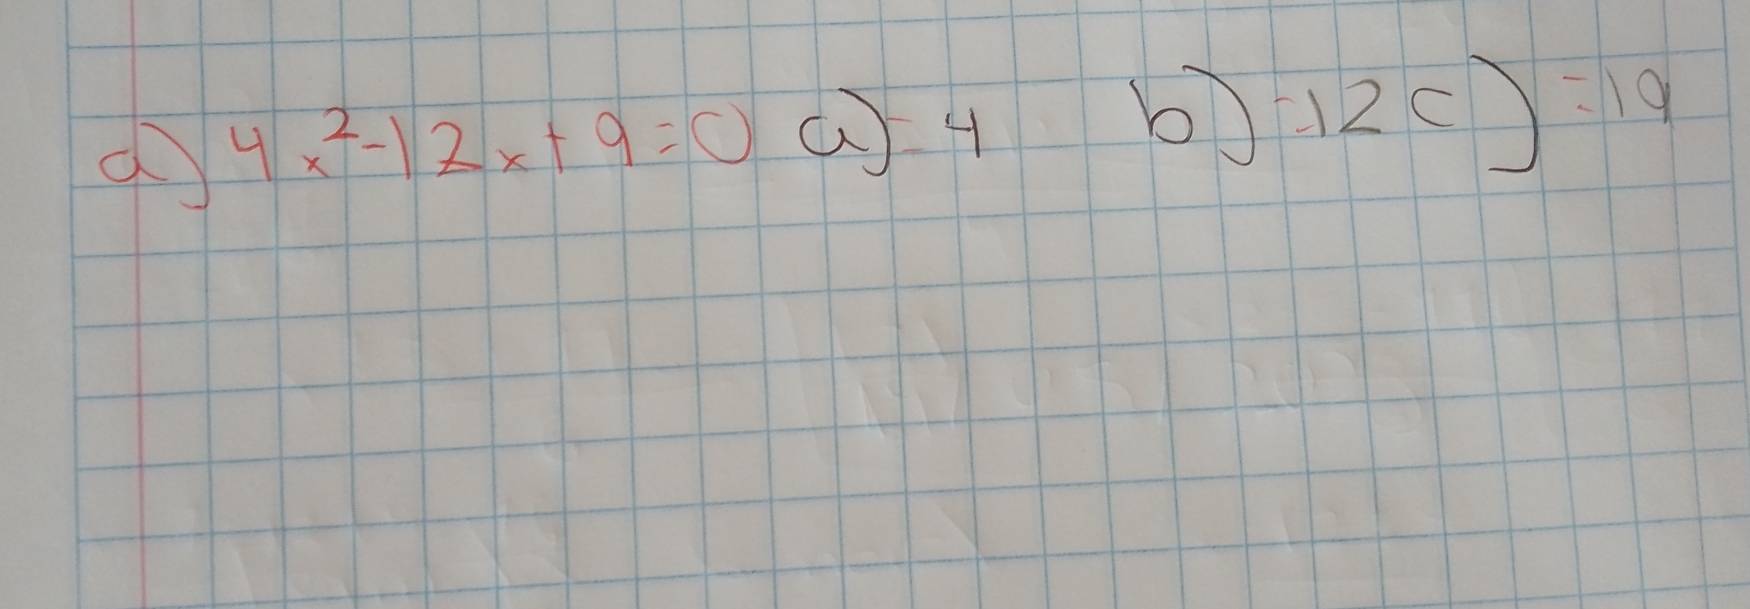 a) 4x²-12x+9=0 a)=4 b)=12 c)=19